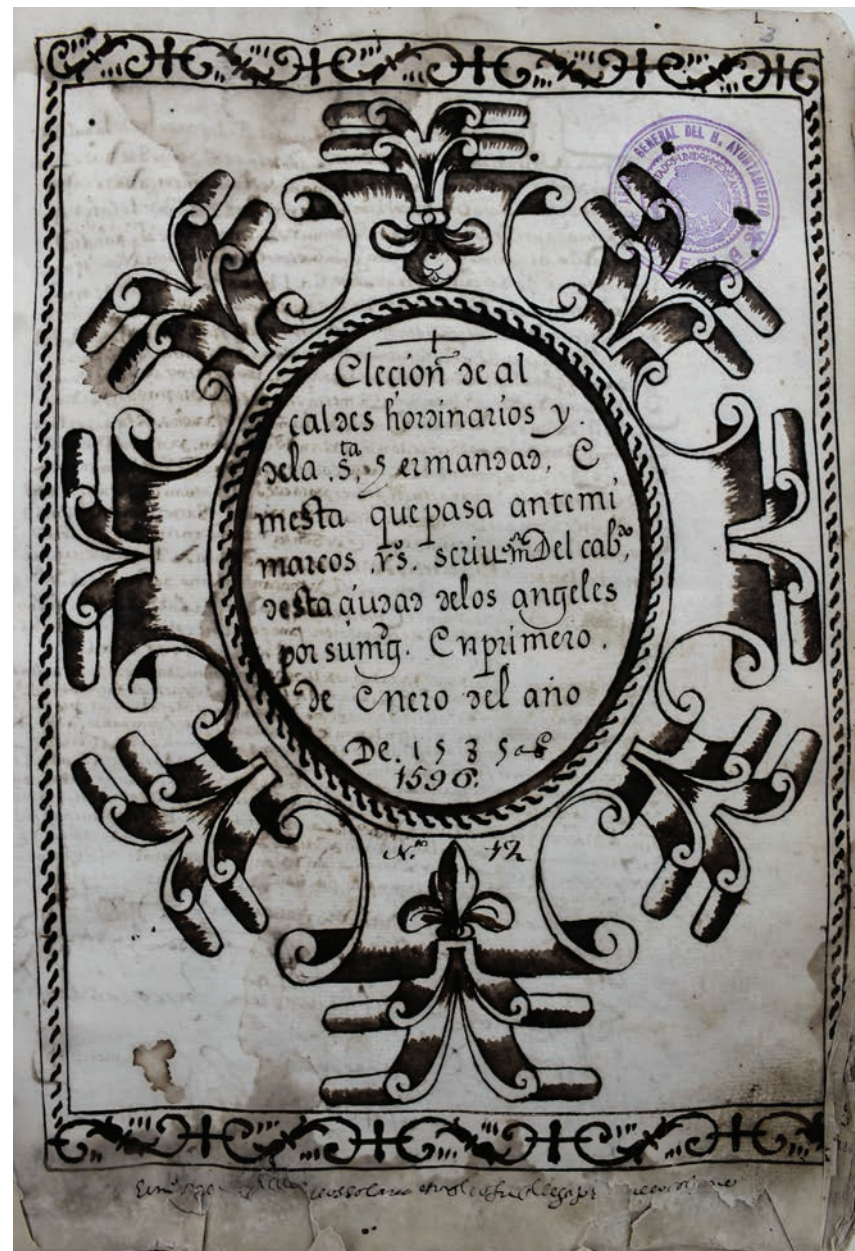 L
3
GENERAL DEL H. AYUNTAMIENTO
ESTADOS UNIDOS MEXICANOS
Elecion de al
caldes hordinarios y.
dela .sta, hermandad, E
mesta que pasa antemi
marcos .rs. scriuno Del cabo,
desta ciudad delos angeles
por sumg. Enprimero.
de Enero del año
De. 1585 as
1596.
N.o 12